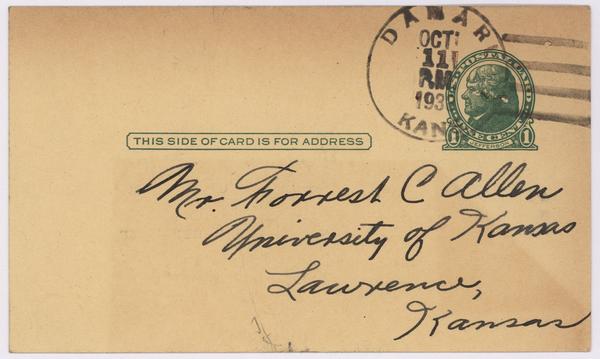 DAMAR
OCT
11
P.M.
193
KAN
U.S. POSTAL CARD
1 ONE CENT 1
JEFFERSON
THIS SIDE OF CARD IS FOR ADDRESS
Mr. Forrest C Allen
University of Kansas
Lawrence,
Kansas